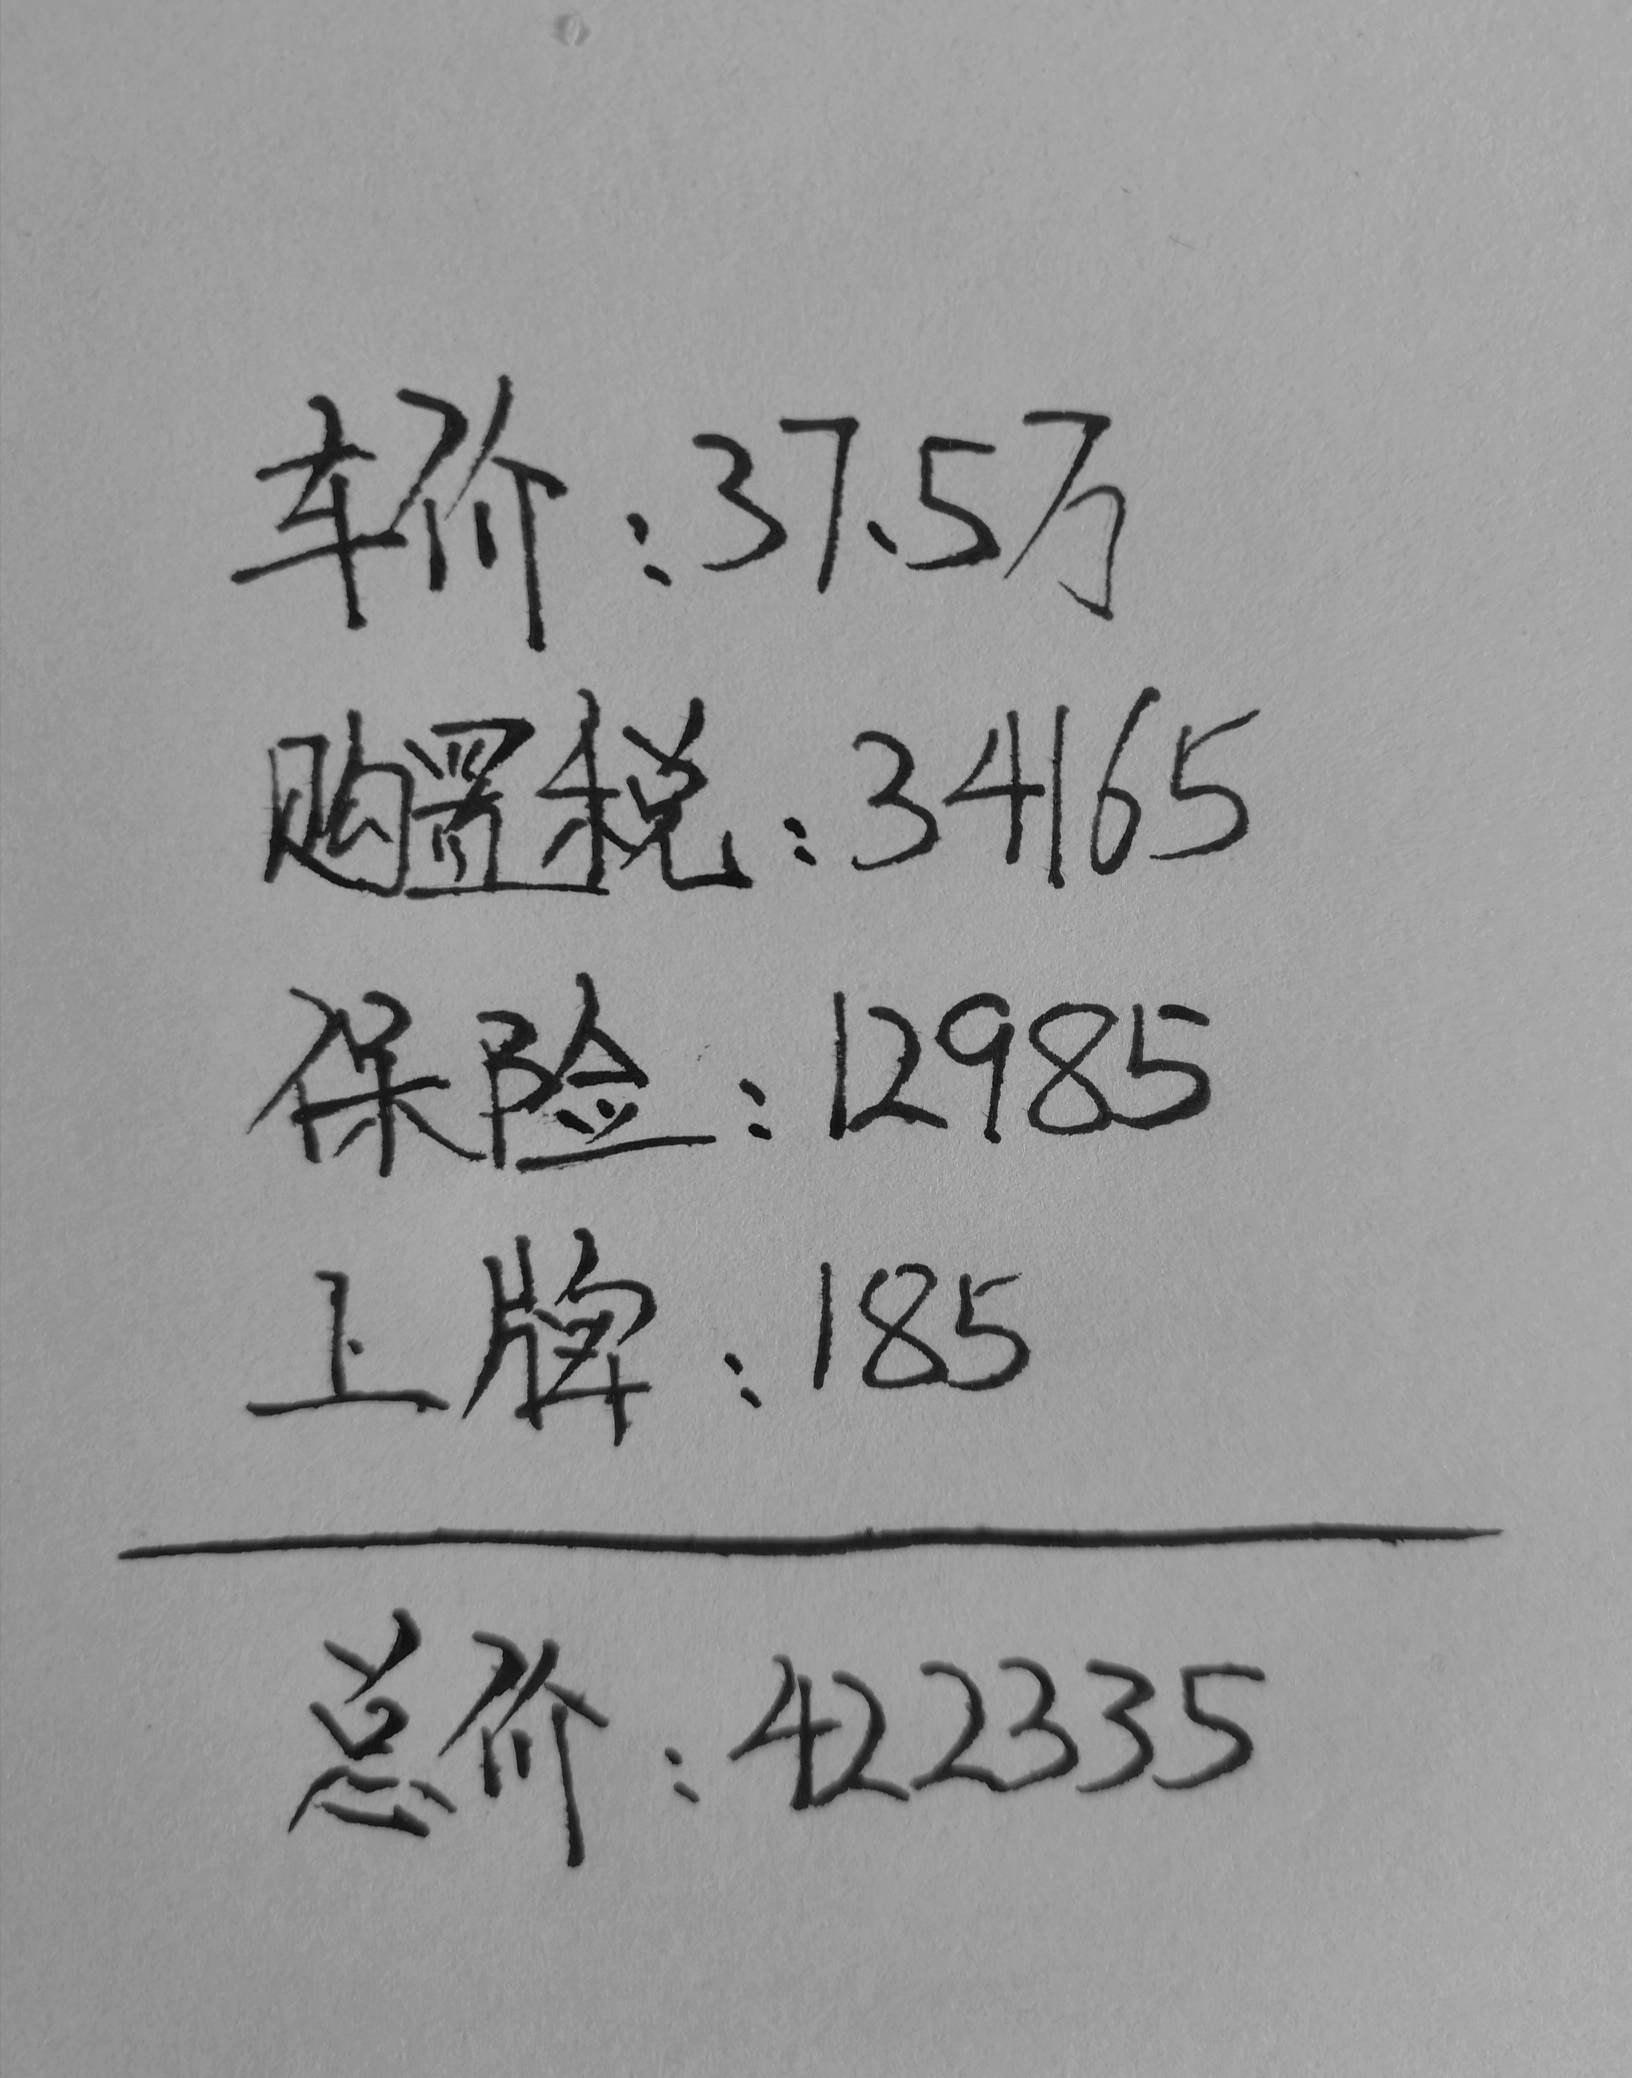 车价：37.5万
购置税：34165
保险：12985
上牌：185
总价：422335